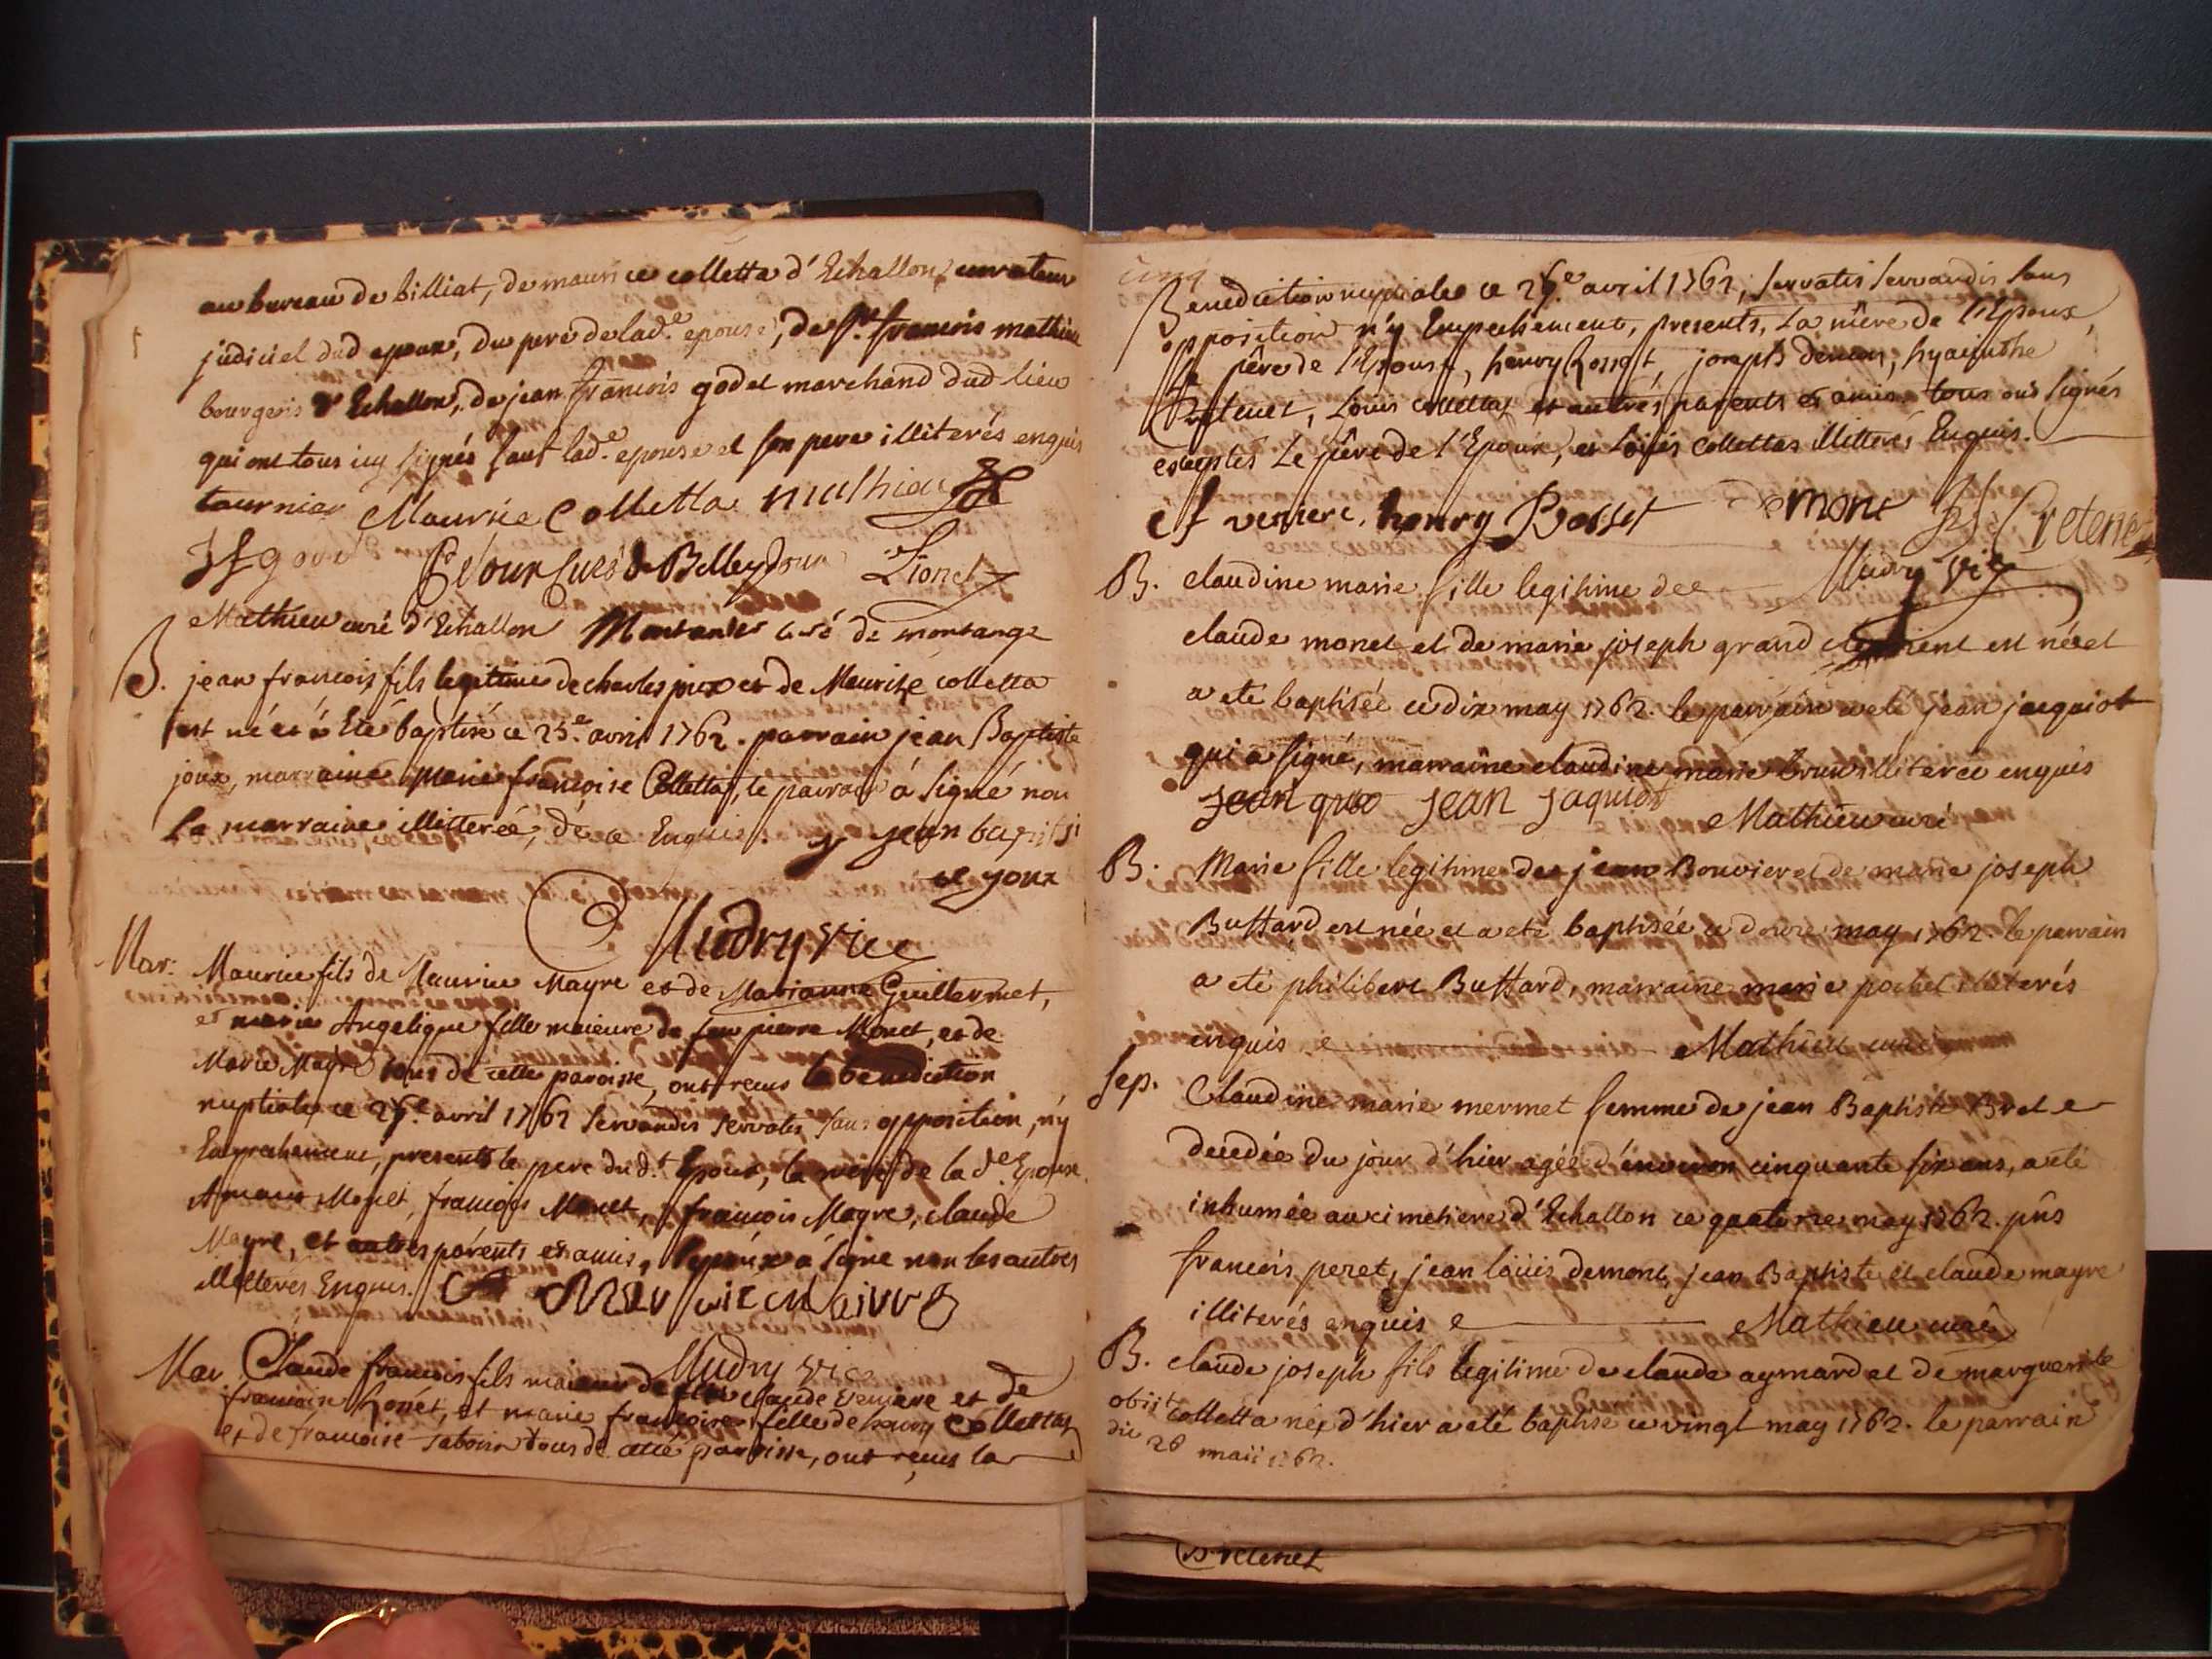 au bureau de billiat, de maurice colletta d'Echallon, curateur
judiciel dud epoux, du pere de lad.e epouse, de Sr. francois mathieu
bourgeois d'Echallon, de jean francois godet marchand dud lieu
qui ont tous icy signés sauf lad.e epouse et son pere illiterés enquis
tournier Maurice Colletta mathieu
JF godet curé de Belleydoux Lionet
Mathieu curé d'Echallon Montanier curé de montange
B. jean francois fils legitime de charles joux et de Maurise colletta
est né et à Eté baptisé ce 23.e avril 1762. parrain jean Baptiste
joux, marraine Marie francoise Collettaz, le parrain à signé non
la marraine illitterée, de ce Enquis. jean baptiste
joux
Mudry vic
Mar. Maurice fils de Maurice Mayre et de Marianne Guillermet,
et marie Angelique fille majeure de feu pierre Monet, et de
Marie Mayre tous de cette paroisse, ont recus la benediction
nuptiale ce 27.e avril 1762 servandis servatis, sans opposition, n'y
Empechement, presents le pere du d.t Epoux, la mere de la d.e Epouse,
Monet, francois Monet, francois Mayre, claude
Mayre, et autres parents et amis, l'epoux à signé non les autres
illitterés Enquis.
Mudry vic
Mar. Claude francois fils majeur de claude veniere et de
francoise Rosset, et marie francoise fille de henry Collettaz
et de francoise tous de cette paroisse, ont recus la
cinq
Benediction nuptiale ce 27.e avril 1762, servatis servandis sans
opposition n'y Empechement, presents, la mère de l'Epoux,
le père de l'Epouse, henry Rosset, joseph demon, hyacinthe
Cretenet, Louis collettaz et autres parents et amis, tous ont signés
exceptés le père de l'Epouse, et Loüis Collettaz illitterés Enquis.
cf veniere, henry Rosset demont Cretenet
Mudry vic
B. claudine marie fille legitime de
claude monet et de marie joseph grand clement est née et
a eté baptisée ce dix may 1762. le parrain a eté jean jacquiot
qui a signé, marraine claudine marie brun illiterée enquis
jean jaquiot
Mathieu curé
B. Marie fille legitime de jean Bouvier et de marie joseph
Buffard est née et a eté baptisée ce douze may 1762. le parrain
a eté philibert Buffard, marraine marie pochet illiterés
enquis Mathieu curé
Sep. Claudine marie mermet femme de jean Baptiste Bret
decedée du jour d'hier agée d'environ cinquante six ans, a eté
inhumée au cimetiere d'Echallon ce quatorze may 1762. pñs
francois peret, jean loüis demont, jean Baptiste et claude mayre
illiterés enquis Mathieu curé
B. claude joseph fils legitime de claude aymard et de marguerite
colletta né d'hier a eté baptisé ce vingt may 1762. le parrain
obiit
die 26 maii 1762.
Cretenet